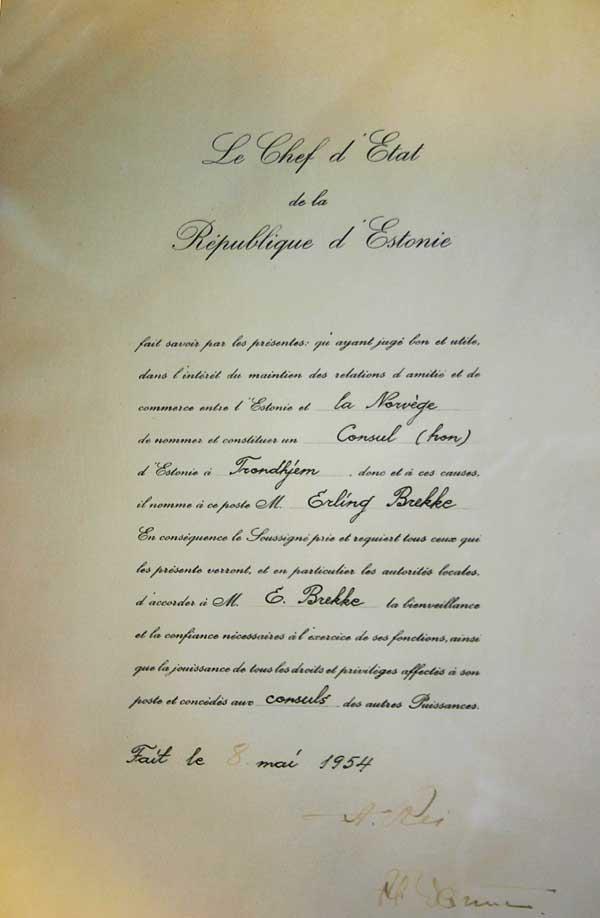 Le Chef d'Etat
de la
République d'Estonie
fait savoir par les présentes: qu'ayant jugé bon et utile,
dans l'intérêt du maintien des relations d'amitié et de
commerce entre l'Estonie et la Norvège
de nommer et constituer un Consul (hon)
d'Estonie à Trondhjem, donc et à ces causes,
il nomme à ce poste M. Erling Brekke
En conséquence le Soussigné prie et requiert tous ceux qui
les présente verront, et en particulier les autorités locales,
d'accorder à M. E. Brekke la bienveillance
et la confiance nécessaires à l'exercice de ses fonctions, ainsi
que la jouissance de tous les droits et privilèges affectés à son
poste et concédés aux consuls des autres Puissances.
Fait le 8. mai 1954
A. Rei